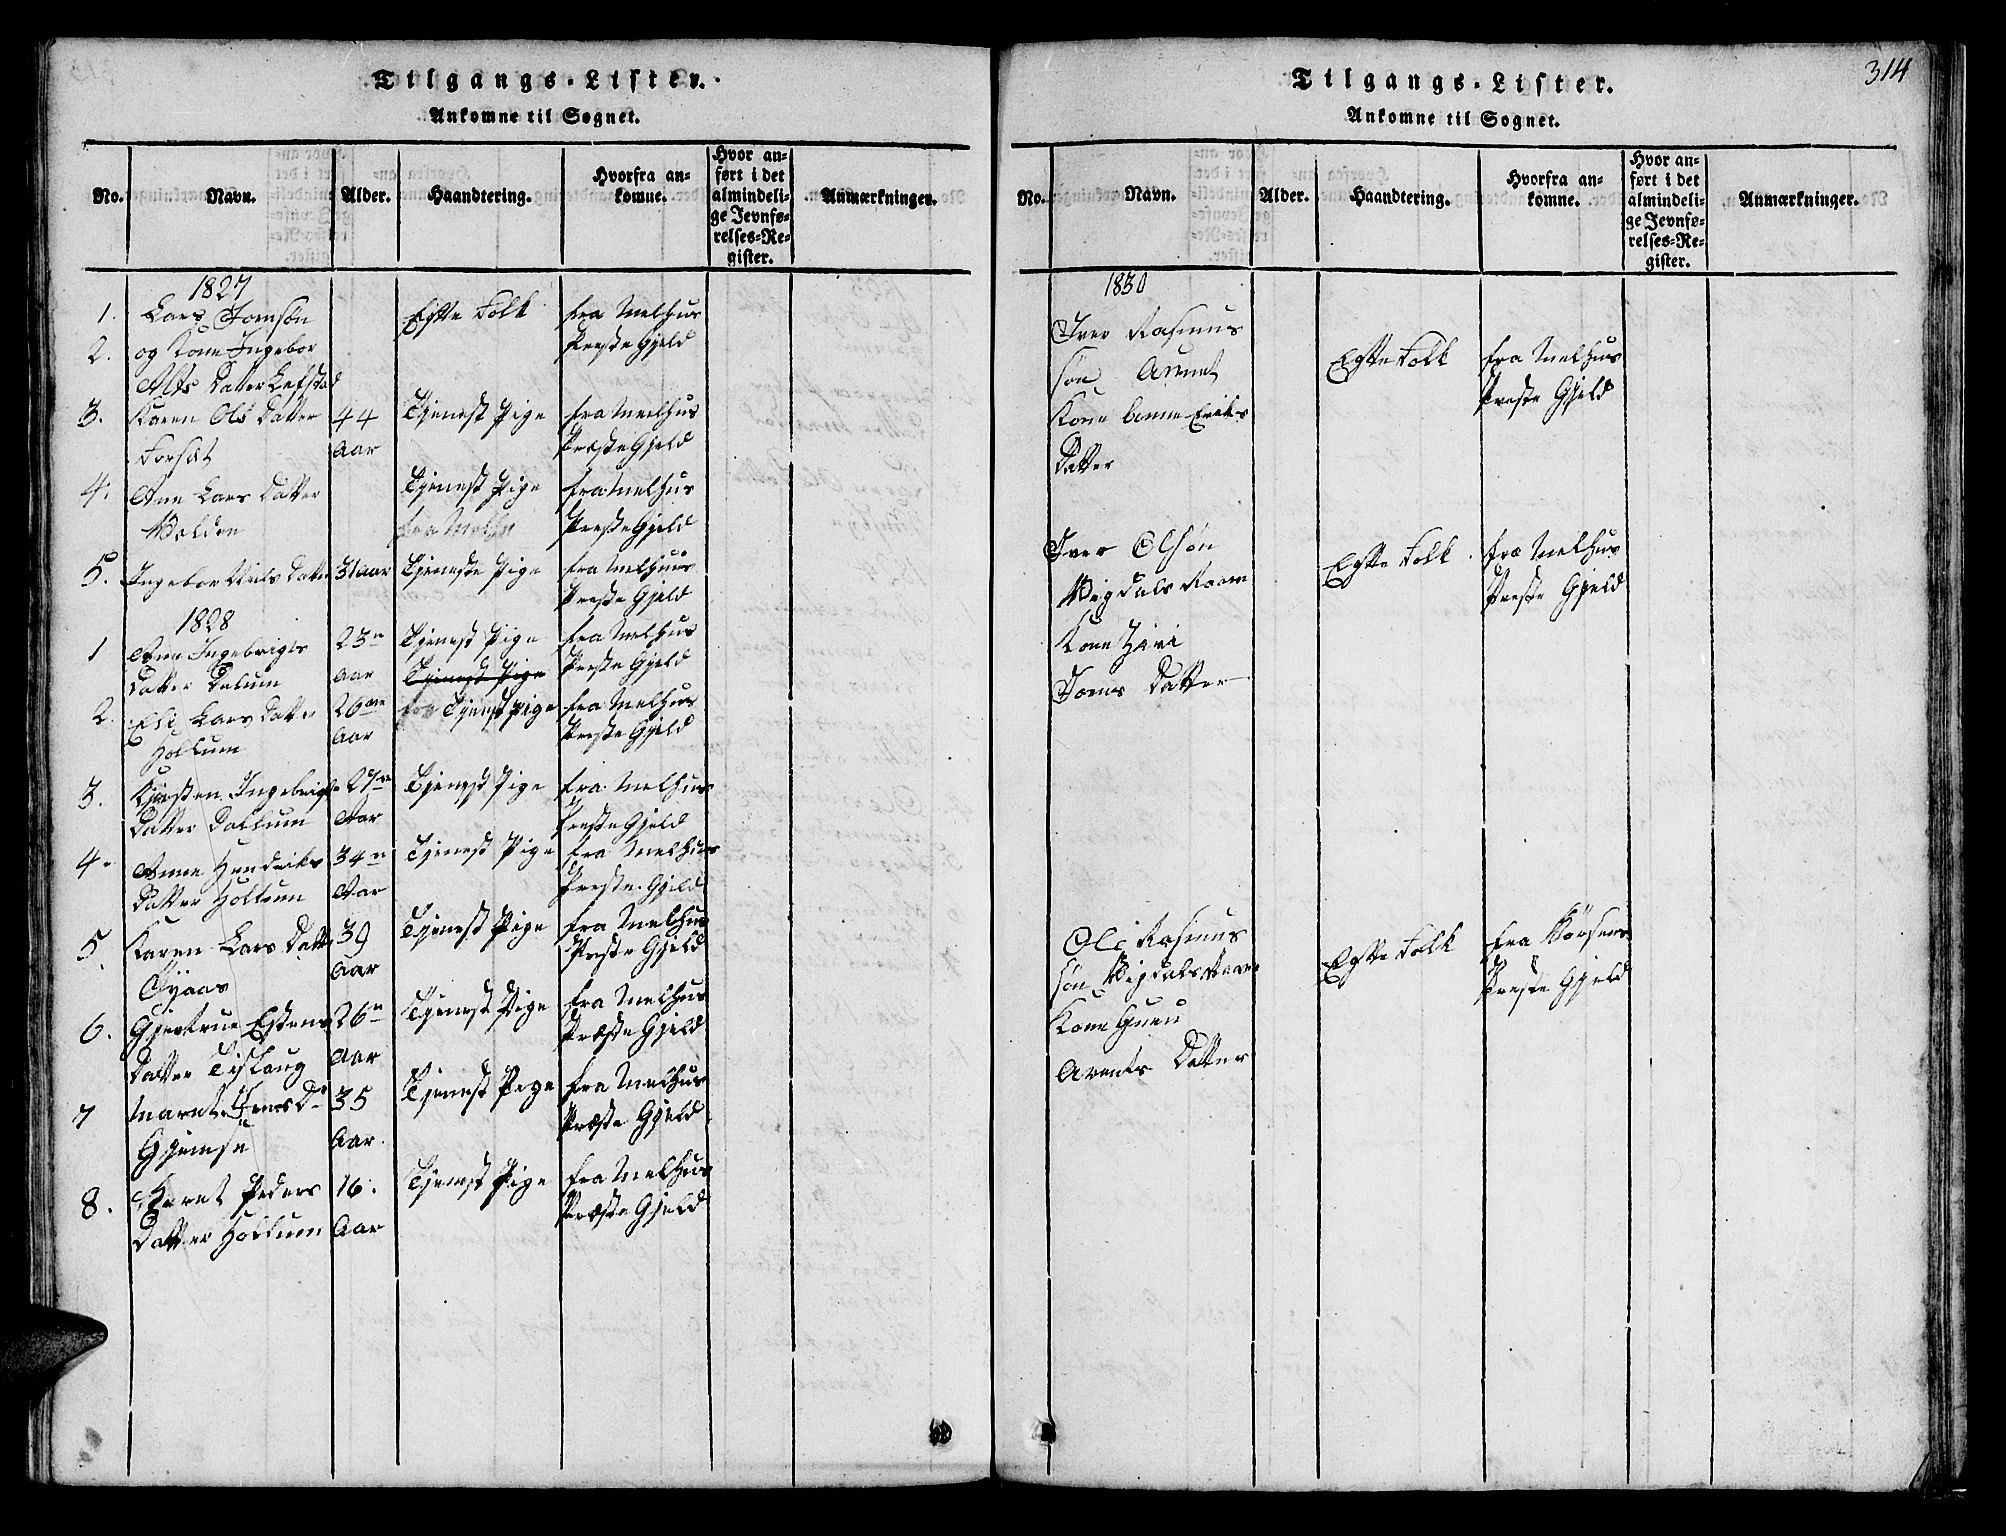 Tilgangs-Lister.
Ankomne til Sognet.
No. Navn. Alder. Haandtering. Hvorfra ankomne. Hvor anført i det almindelige Jevnførelses-Register. Anmærkninger.
1827
1. Lars Jomsøn Egte Folk fra Melhus
2. og Kone Ingebor Preste Gjeld
Datter
3. Karen Ols Datter 44 Tjenest Pige fra Melhus
Forsæt Aar Præste Gjeld
4. Ane Lars Datter Tjenest Pige fra Melhus
Volden Preste Gjeld
5. Ingebor Niels Datter 31 aar Tjeneste Pige fra Melhuus
Preste Gjeld
1828
1 Ane Ingebrigts 23 Tjenest Pige fra Melhus
Datter Dalum aar Tjenest Pige Preste Gjeld
2. Eli Lars Datter 26 Tjenest pige fra Melhus
Hollum Aar Preste Gjeld
3. Kjersten Ingebrigts 27 Tjenest Pige fra Melhus
Datter Dallum Aar Preste Gjeld
4. Anne Hendriks 34 Tjenest Pige fra Melhus
Datter Hollum Aar Preste Gjeld
5. Karen Lars Datter 39 Tjenest Pige fra Melhus
Øyaas Aar Preste Gjeld
6. Gjertrue Estens 26 Tjenest Pige fra Melhus
Datter Tislaug Aar Præste Gjeld
7 Maret Jens D 35 Tjenest Pige fra Melhus
Gjemse Aar. Præste Gjeld
8. Maret Peders 16. Tjenest Pige fra Melhus
Datter Hollum Aar Præste Gjeld
314
Tilgangs-Lister.
Ankomne til Sognet.
No. Navn. Alder. Haandtering. Hvorfra ankomne. Hvor anført i det almindelige Jevnførelses-Register. Anmærkninger.
1830
Iver Rasmus
søn Egte Folk fra Melhus
Preste Gjeld
Kone Anne Eriks
Datter
Iver Olsøn Egte Folk fra Melhus
Vigdals Roem Preste Gjeld
Kone
Joens Datter
Ole Rasmus Egte Folk fra Børsens
søn Vigdals Preste Gjeld
Kone Guru
Arents Datter